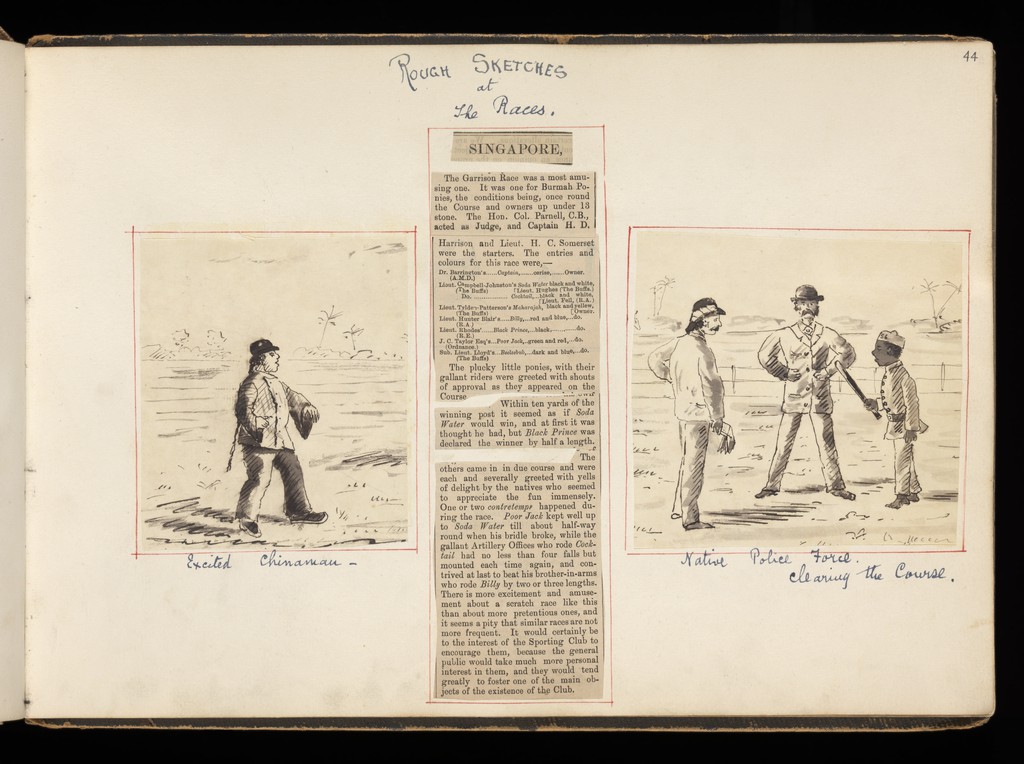 44
ROUGH SKETCHES
at
The Races.
SINGAPORE,
The Garrison Race was a most amu-
sing one. It was one for Burmah Po-
nies, the conditions being, once round
the Course and owners up under 13
stone. The Hon. Col. Parnell, C.B.,
acted as Judge, and Captain H. D.
Harrison and Lieut. H. C. Somerset
were the starters. The entries and
colours for this race were,—
Dr. Barrington's.....Captain,.......cerise,......Owner.
(A.M.D.)
Lieut. Campbell-Johnston's Soda Water black and white,
(The Buffs) (Lieut. Hughes (The Buffs.)
Do. ................ Cocktail,..black and white,
(Lieut. Fell, (R.A.)
Lieut. Tylden-Patterson's Maharajah, black and yellow,
(The Buffs) (Owner.
Lieut. Hunter Blair's.....Billy,...red and blue,...do.
(R.A.)
Lieut. Rhodes'.....Black Prince,...black...........do.
(R.E.)
J. C. Taylor Esq's...Poor Jack,..green and red,..do.
(Ordnance.)
Sub. Lieut. Lloyd's...
dark and blue,...do.
(The Buffs)
The plucky little ponies, with their
gallant riders were greeted with shouts
of approval as they appeared on the
Course
Within ten yards of the
winning post it seemed as if Soda
Water would win, and at first it was
thought he had, but Black Prince was
declared the winner by half a length.
The
others came in in due course and were
each and severally greeted with yells
of delight by the natives who seemed
to appreciate the fun immensely.
One or two contretemps happened du-
ring the race. Poor Jack kept well up
to Soda Water till about half-way
round when his bridle broke, while the
gallant Artillery Offices who rode Cock-
tail had no less than four falls but
mounted each time again, and con-
trived at last to beat his brother-in-arms
who rode Billy by two or three lengths.
There is more excitement and amuse-
ment about a scratch race like this
than about more pretentious ones, and
it seems a pity that similar races are not
more frequent. It would certainly be
to the interest of the Sporting Club to
encourage them, because the general
public would take much more personal
interest in them, and they would tend
greatly to foster one of the main ob-
jects of the existence of the Club.
Excited Chinaman –
Native Police Force.
clearing the Course.